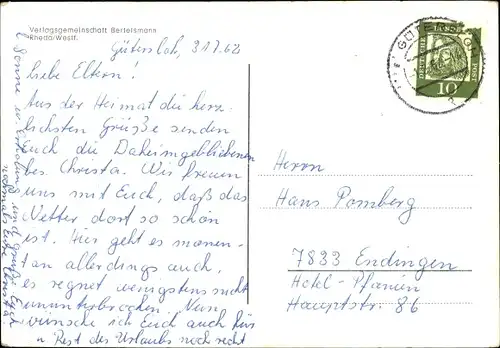 Verlagsgemeinschaft Bertelsmann
Rheda/Westf.
Gütersloh, 31.7.62
Liebe Eltern!
Aus der Heimat die herz-
lichsten Grüße senden
Euch die Daheimgebliebenen
bes. Christa. Wir freuen
uns mit Euch, daß das
Wetter dort so schön
ist. Hier geht es momen-
tan allerdings auch,
es regnet wenigstens nicht
ununterbrochen. Nun
wünsche ich Euch auch für
Rest des Urlaubs noch recht
Sonne u. Erholung und grüße Euch
nochmals Eure Christa
DEUTSCHE BUNDESPOST
10
GÜTERSLOH
Herrn
Hans Pomberg
7833 Endingen
Hotel-Pfauen
Hauptstr. 86